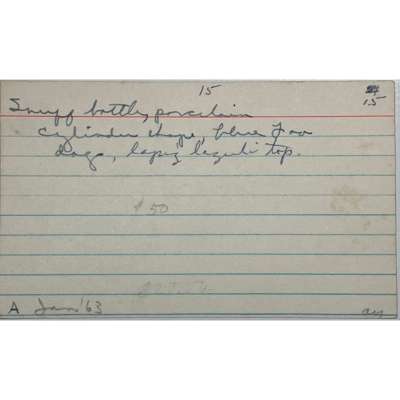 15
15
Snuff bottle, porcelain
cylinder shape, blue Foo
dogs, lapiz lazuli top.
$50
A Jan '63